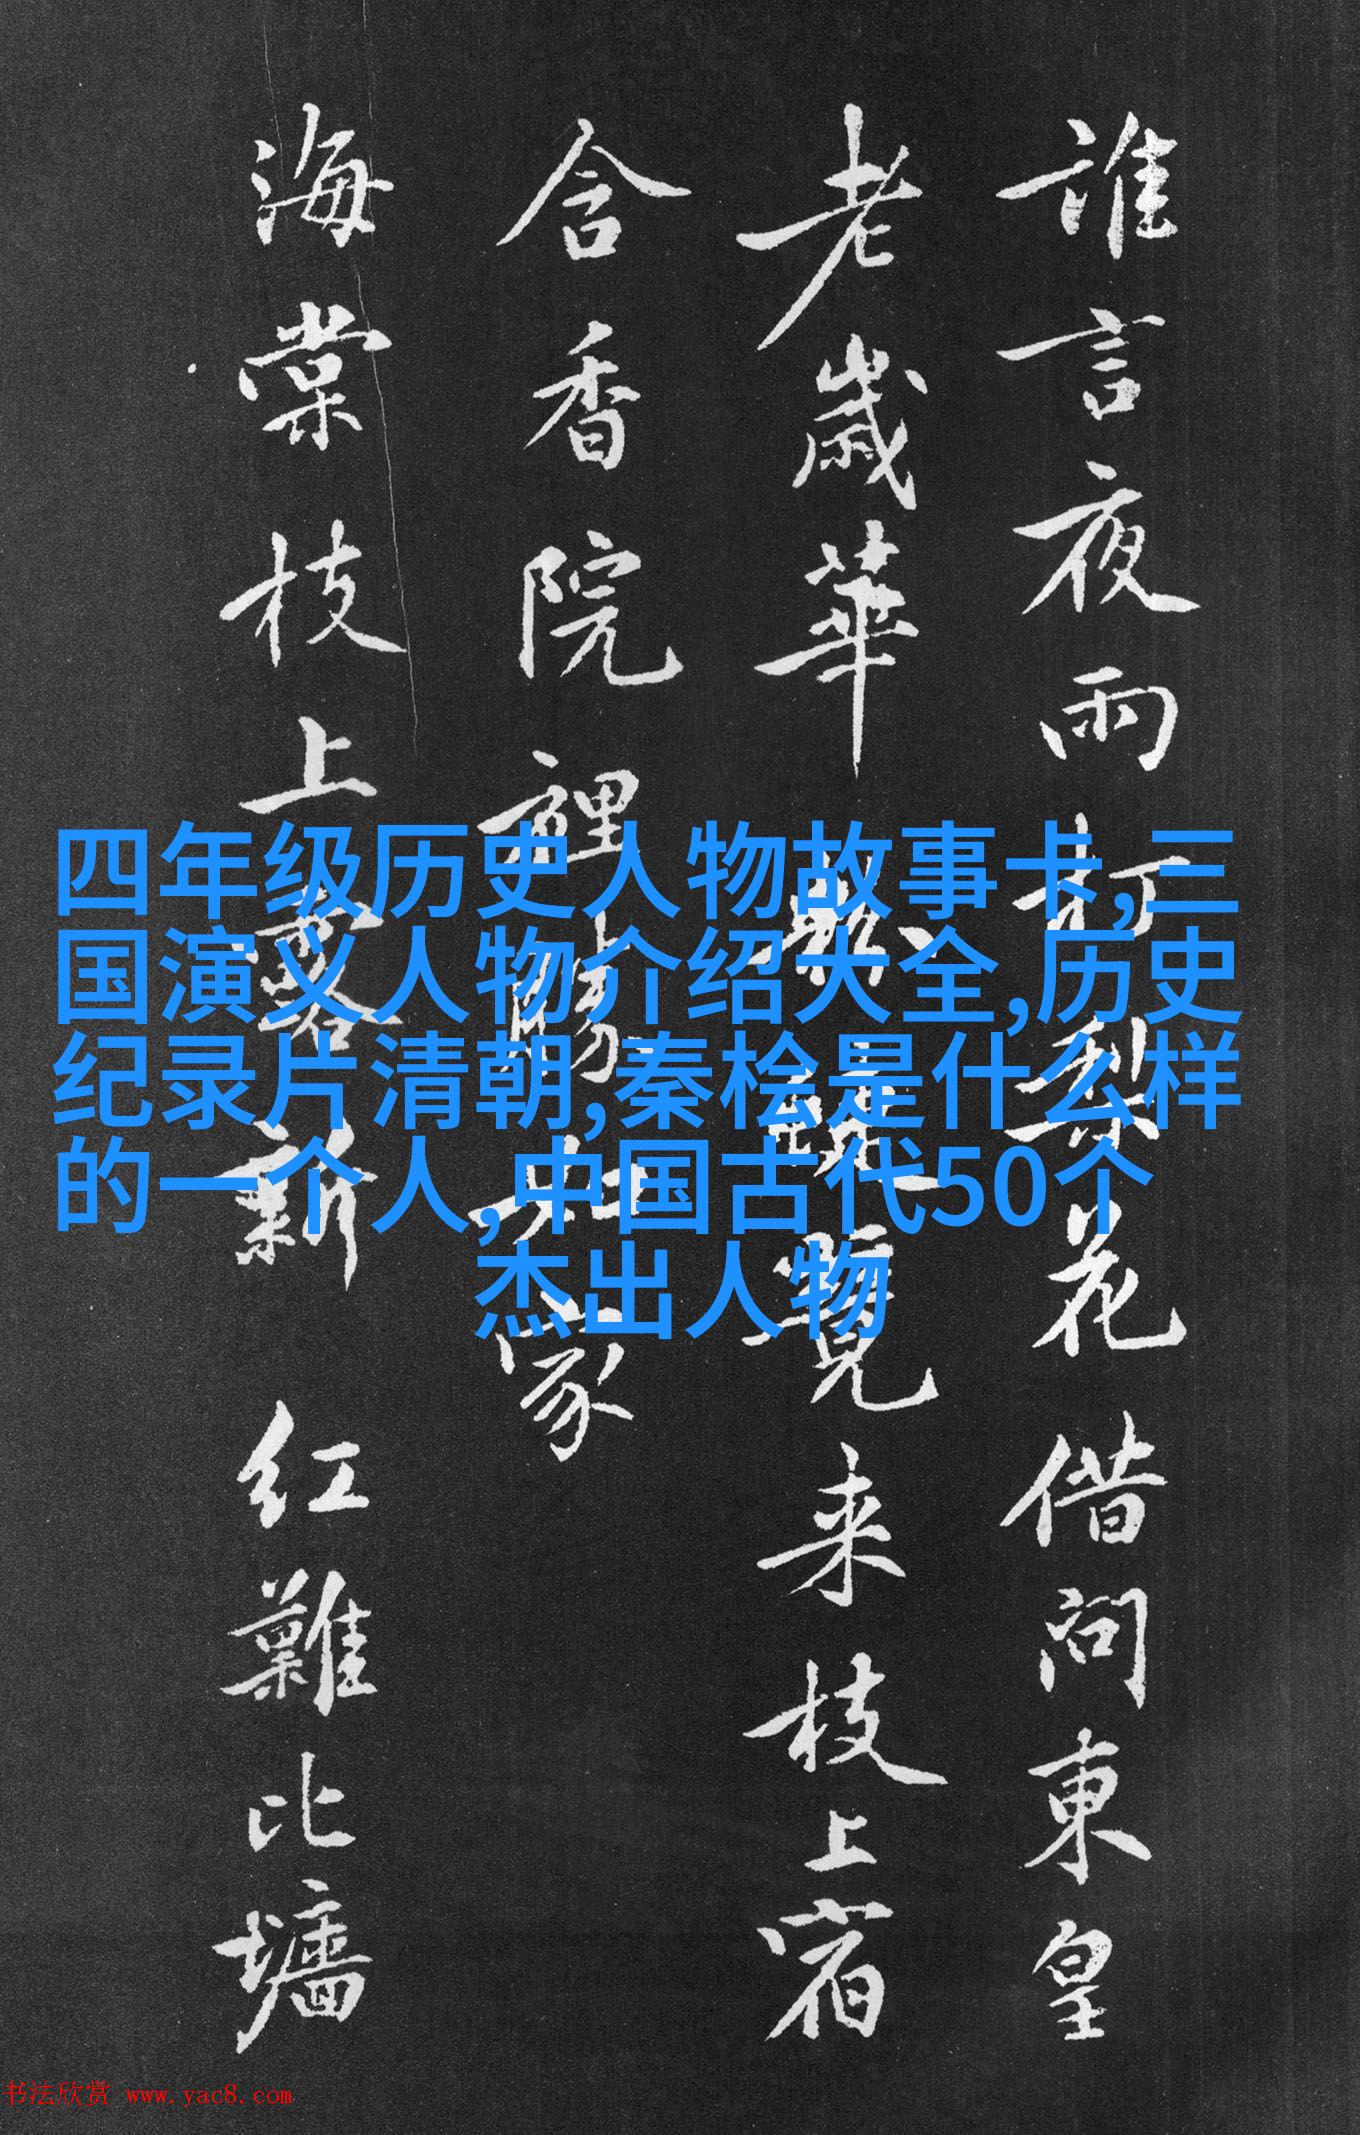 誰言夜雨打梨花借問東皇
老歲華見来枝上宿
含香院裡家
海棠枝上露新红難比墻
四年级历史人物故事卡,三
国演义人物介绍大全,历史
纪录片清朝,秦桧是什么样
的一个人,中国古代50个
杰出人物
书法欣赏 www.yac8.com